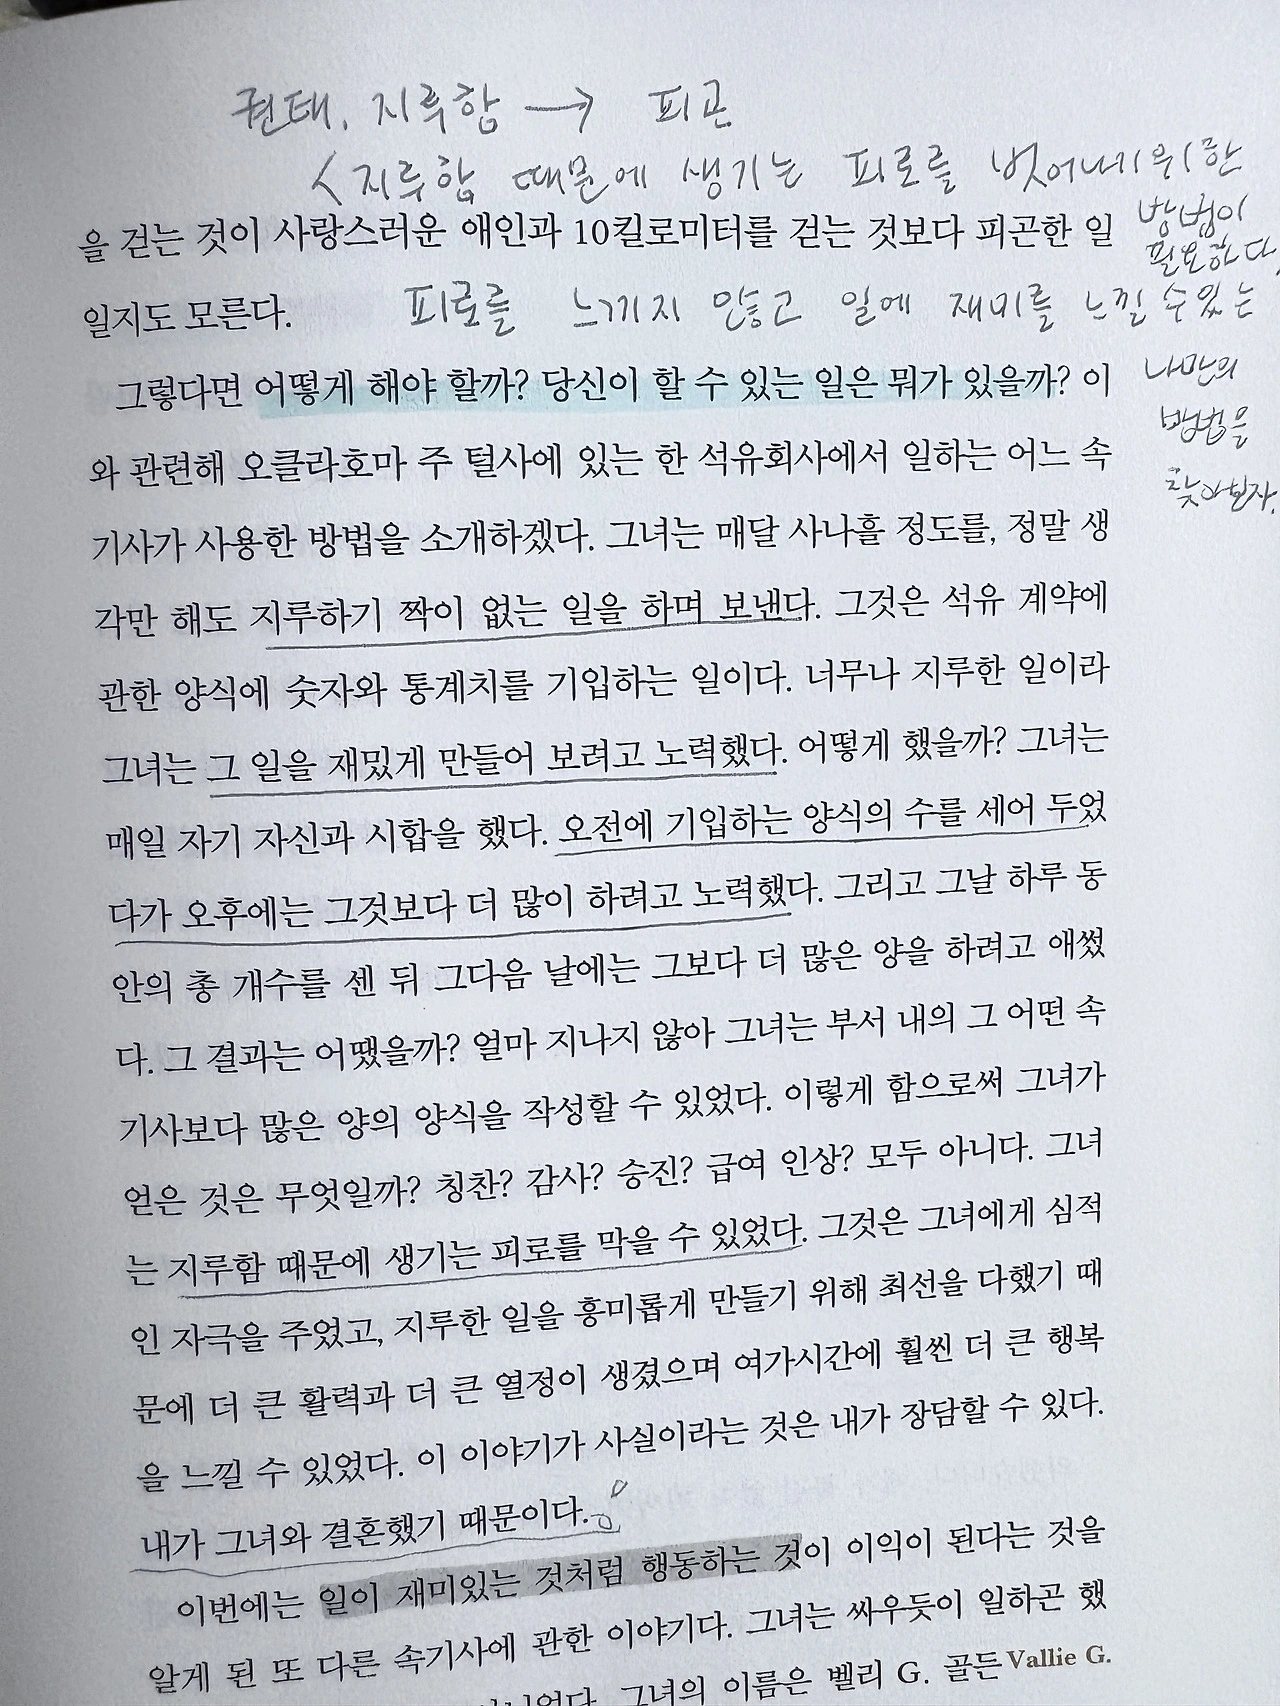 권태, 지루함 → 피곤
< 지루함 때문에 생기는 피로를 벗어나기위한
방법이
필요하다.
을 걷는 것이 사랑스러운 애인과 10킬로미터를 걷는 것보다 피곤한 일
일지도 모른다.
피로를 느끼지 않고 일에 재미를 느낄 수 있는
나만의
방법을
찾아보자.
그렇다면 어떻게 해야 할까? 당신이 할 수 있는 일은 뭐가 있을까? 이
와 관련해 오클라호마 주 털사에 있는 한 석유회사에서 일하는 어느 속
기사가 사용한 방법을 소개하겠다. 그녀는 매달 사나흘 정도를, 정말 생
각만 해도 지루하기 짝이 없는 일을 하며 보낸다. 그것은 석유 계약에
관한 양식에 숫자와 통계치를 기입하는 일이다. 너무나 지루한 일이라
그녀는 그 일을 재밌게 만들어 보려고 노력했다. 어떻게 했을까? 그녀는
매일 자기 자신과 시합을 했다. 오전에 기입하는 양식의 수를 세어 두었
다가 오후에는 그것보다 더 많이 하려고 노력했다. 그리고 그날 하루 동
안의 총 개수를 센 뒤 그다음 날에는 그보다 더 많은 양을 하려고 애썼
다. 그 결과는 어땠을까? 얼마 지나지 않아 그녀는 부서 내의 그 어떤 속
기사보다 많은 양의 양식을 작성할 수 있었다. 이렇게 함으로써 그녀가
얻은 것은 무엇일까? 칭찬? 감사? 승진? 급여 인상? 모두 아니다. 그녀
는 지루함 때문에 생기는 피로를 막을 수 있었다. 그것은 그녀에게 심적
인 자극을 주었고, 지루한 일을 흥미롭게 만들기 위해 최선을 다했기 때
문에 더 큰 활력과 더 큰 열정이 생겼으며 여가시간에 훨씬 더 큰 행복
을 느낄 수 있었다. 이 이야기가 사실이라는 것은 내가 장담할 수 있다.
내가 그녀와 결혼했기 때문이다.
이번에는 일이 재미있는 것처럼 행동하는 것이 이익이 된다는 것을
알게 된 또 다른 속기사에 관한 이야기다. 그녀는 싸우듯이 일하곤 했
그녀의 이름은 밸리 G. 골든 Vallie G.